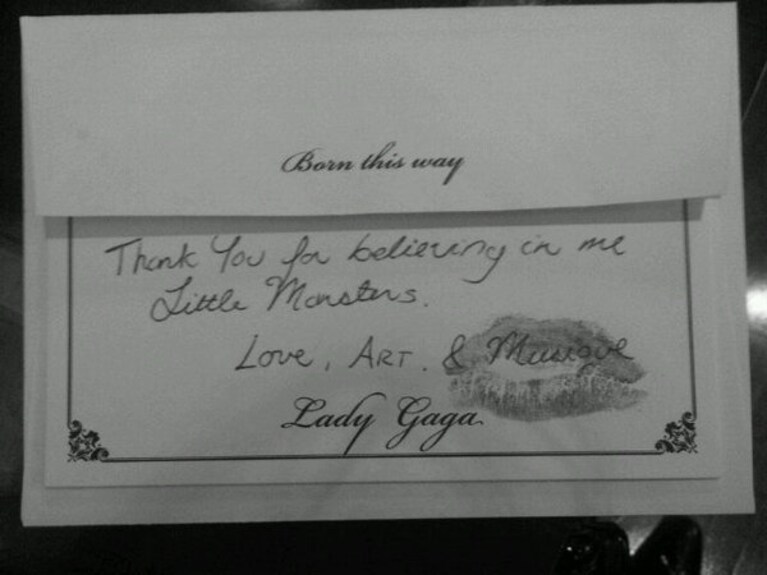 Born this way
Thank You for believing in me
Little Monsters.
Love, ART. & Musique
Lady Gaga